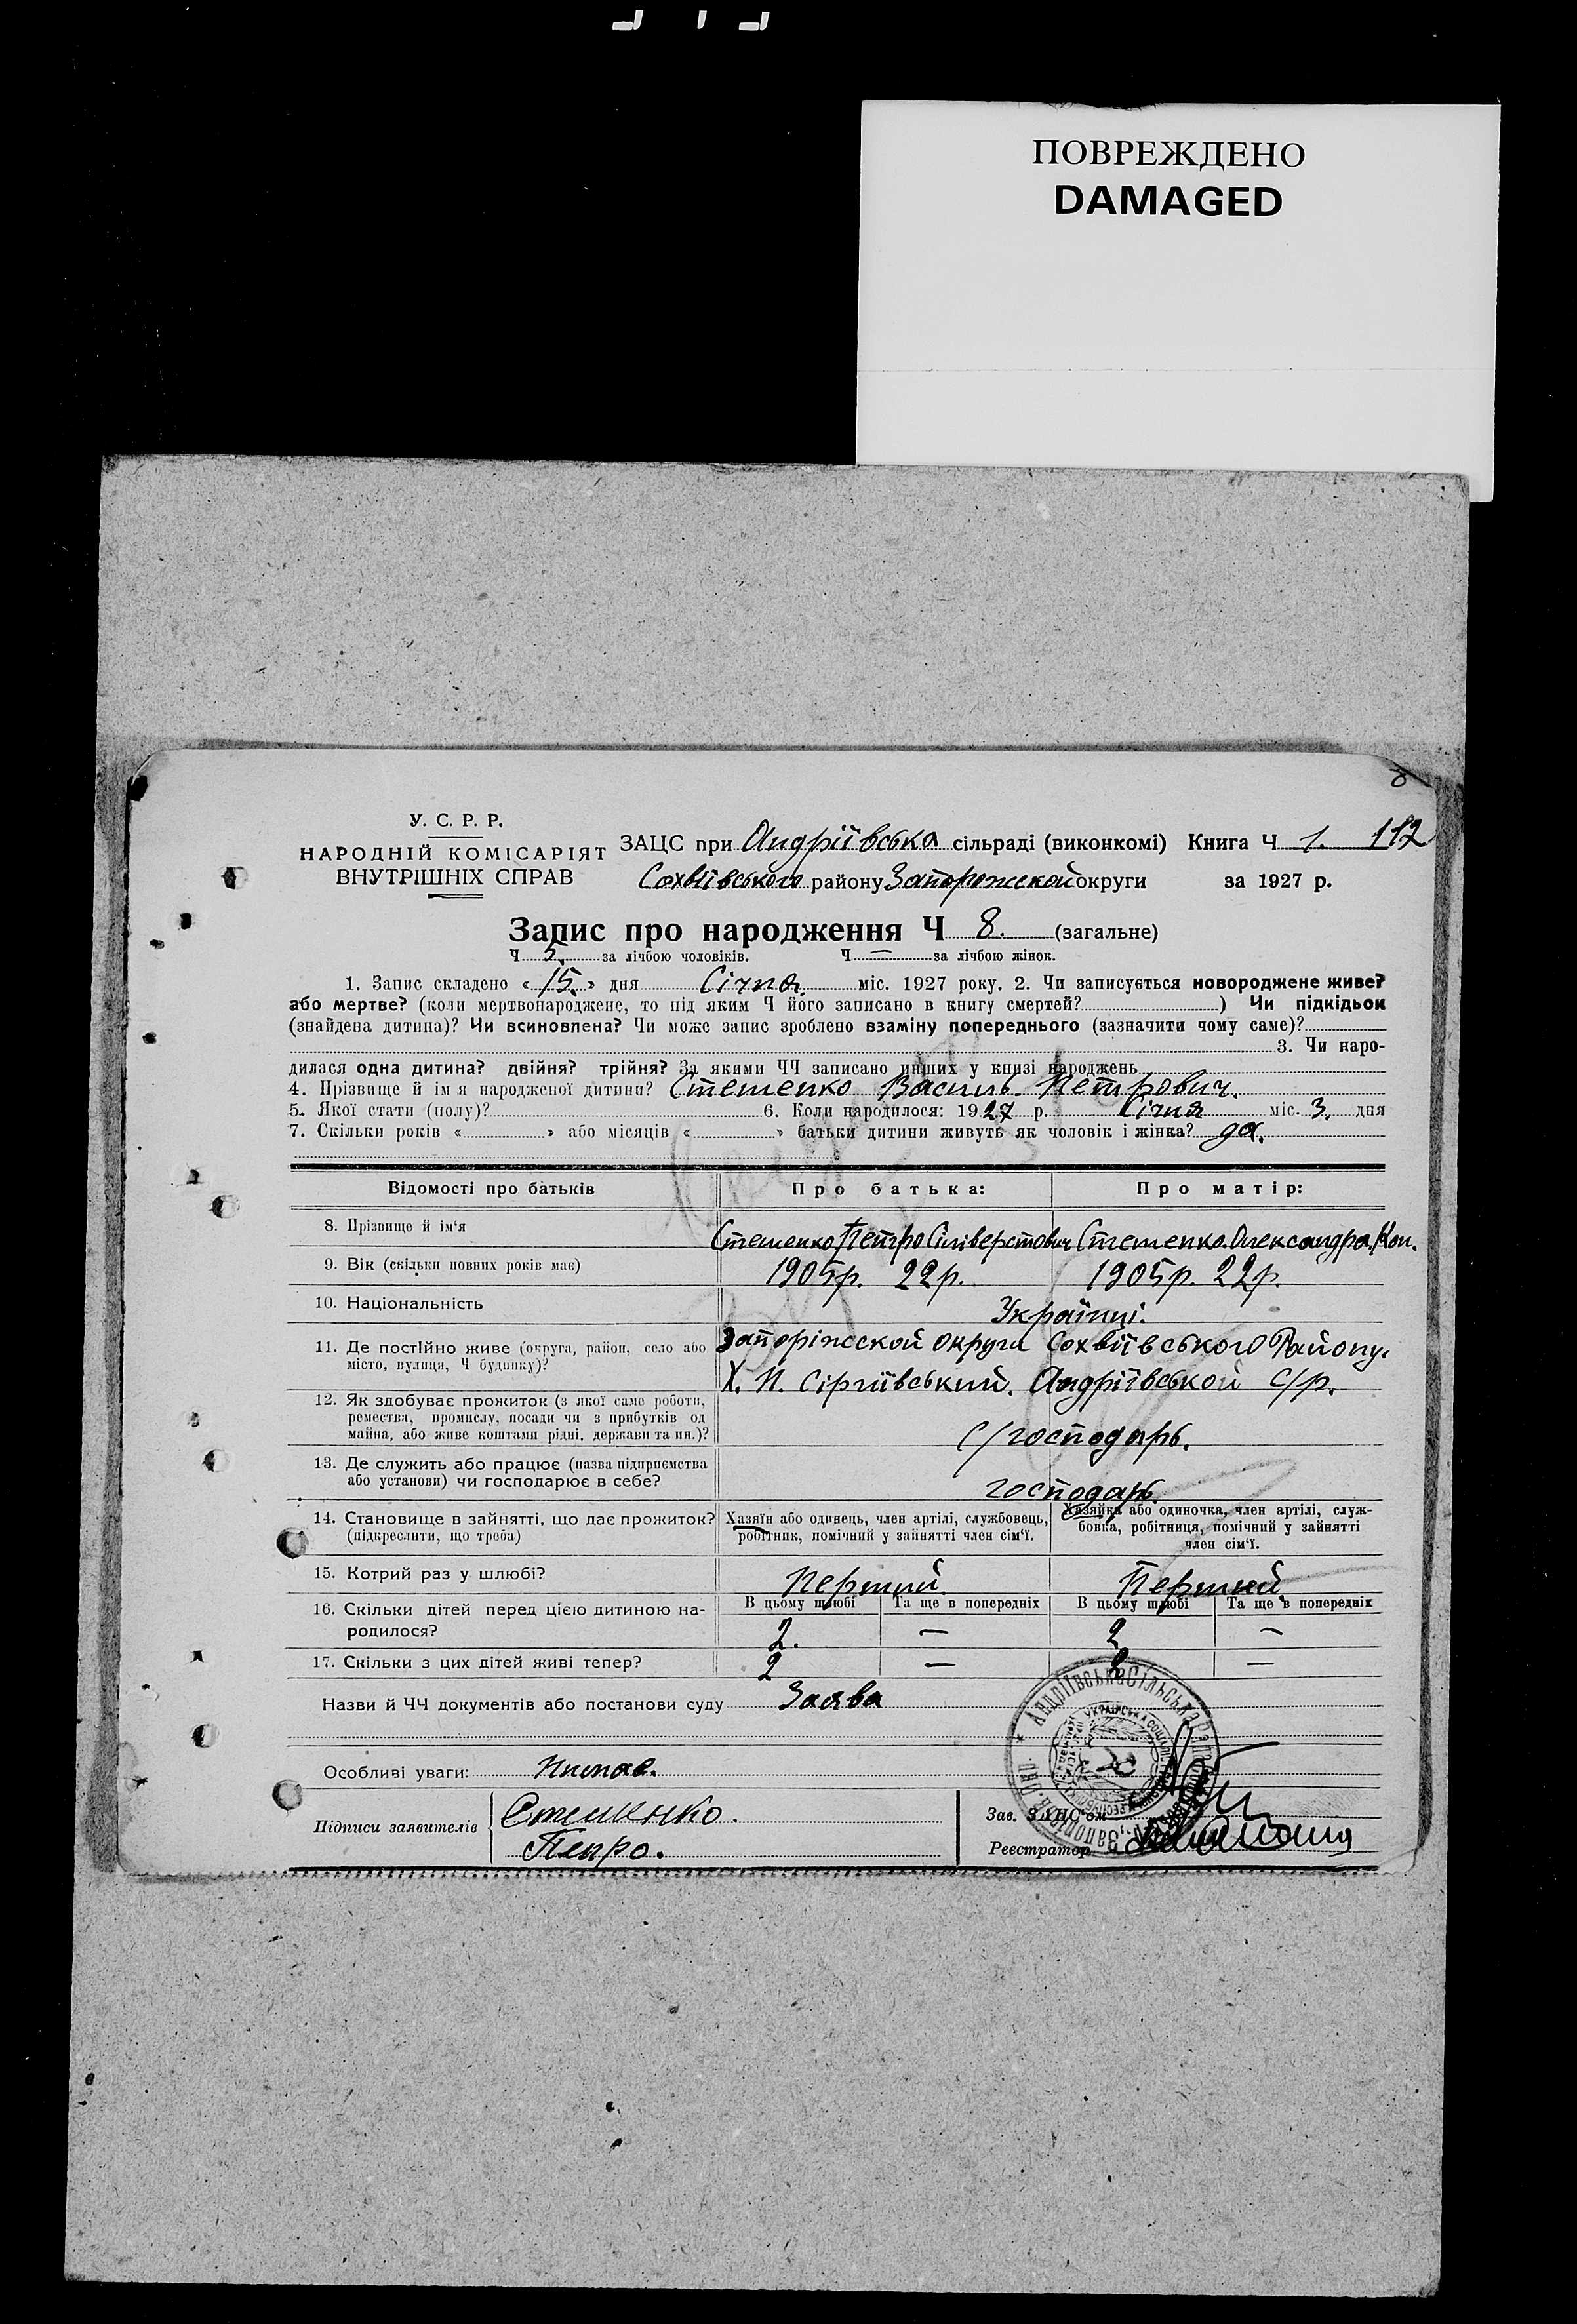 ПОВРЕЖДЕНО
DAMAGED
8
У. С. Р. Р.
НАРОДНІЙ КОМІСАРІЯТ
ВНУТРІШНІХ СПРАВ
ЗАЦС при Андріївська сільраді (виконкомі) Книга Ч 1. 112
Сохвіївського району Запорожской округи за 1927 р.
Запис про народження Ч 8. (загальне)
Ч 5. за лічбою чоловіків. Ч — за лічбою жінок.
1. Запис складено «15.» дня Січня міс. 1927 року. 2. Чи записується новороджене живе?
або мертве? (коли мертвонароджене, то під яким Ч його записано в книгу смертей? ) Чи підкідьок
(знайдена дитина)? Чи всиновлена? Чи може запис зроблено взаміну попереднього (зазначити чому саме)?
3. Чи наро-
дилася одна дитина? двійня? трійня? За якими ЧЧ записано инших у книзі народжень
4. Прізвище й ім'я народженої дитини? Стешенко Василь Петрович.
5. Якої стати (полу)? 6. Коли народилося: 1927 р. Січня міс. 3. дня
7. Скільки років « » або місяців « » батьки дитини живуть як чоловік і жінка? да.
Відомості про батьків Про батька: Про матір:
8. Прізвище й ім'я Стешенко Петро Сіліверстович Стешенко Олександра Кон.
9. Вік (скільки повних років має) 1905р. 22р. 1905р. 22р.
10. Національність Українці.
11. Де постійно живе (округа, район, село або місто, вулиця, Ч будинку)? Запоріжской округи Сохвіївського Району.
Х. Н. Сіргіївський. Андріївской с/р.
12. Як здобуває прожиток (з якої саме роботи,
ремества, промислу, посади чи з прибутків од
майна, або живе коштами рідні, держави та ин.)? С/господарь.
13. Де служить або працює (назва підприємства
або установи) чи господарює в себе? господарь.
14. Становище в зайнятті, що дає прожиток?
(підкреслити, що треба)
Хазяїн або одинець, член артілі, службовець,
робітник, помічний у зайнятті член сім'ї.
Хазяйка або одиночка, член артілі, служ-
бовка, робітниця, помічний у зайнятті
член сім'ї.
15. Котрий раз у шлюбі? Перший. Перший
16. Скільки дітей перед цією дитиною на-
родилося?
В цьому шлюбі Та ще в попередніх В цьому шлюбі Та ще в попередніх
2. — 2 —
17. Скільки з цих дітей живі тепер? 2 — 2 —
Назви й ЧЧ документів або постанови суду Заява
Особливі уваги: Нимає.
Підписи заявителів Стешенко.
Петро.
Зав. ЗАЦС'ом
Реєстратор
Андріївська Сільська Рада